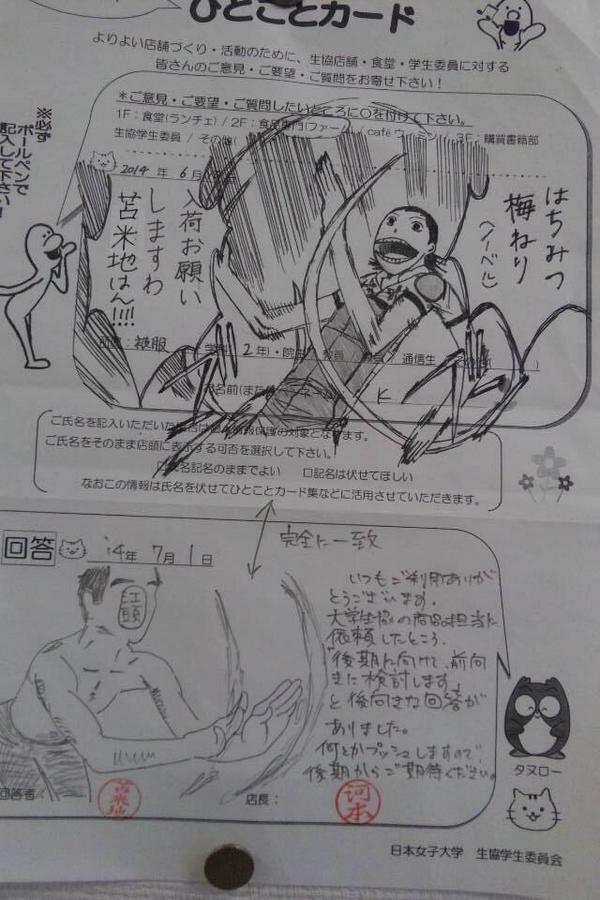 ひとことカード
よりよい店舗づくり・活動のために、生協店舗・食堂・学生委員に対する
皆さんのご意見・ご要望・ご質問をお寄せ下さい！
※必ず
ボールペンで
記入して下さい！
*ご意見・ご要望・ご質問したいところに○を付けて下さい。
1F：食堂(ランチェ) / 2F：食品専門(ファーム) / café / 3F：購買書籍部
生協学生委員 / その他(
2014 年 6月
はちみつ
梅ねり
(ノーベル)
入荷お願い
しますわ
苫米地はん!!!!
被服 2年)・院 教員 通信生
名前(また
K
ご氏名を記入いただいた 保護の対象となります。
ご氏名をそのまま店頭に表示する可否を選択して下さい。
氏名記名のままでよい □記名は伏せてほしい
なおこの情報は氏名を伏せてひとことカード集などに活用させていただきます。
完全に一致
回答 '14年 7月 1日
江頭
いつもご利用ありが
とうございます。
大学生協の商品担当に
依頼したところ、
「後期に向けて、前向
きに検討します」
と後向きな回答が
ありました。
何とかプッシュしますので
後期からご期待ください。
タヌロー
回答者： 苫米地 店長： 河本
日本女子大学 生協学生委員会